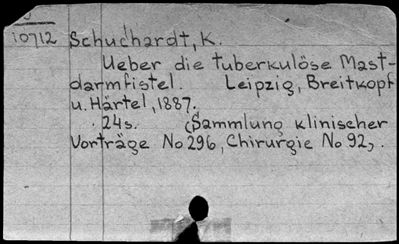 10712 Schuchardt, K.
Ueber die tuberkulöse Mast-
darmfistel. Leipzig, Breitkopf
u. Härtel, 1887.
24s. (Sammlung klinischer
Vorträge No 296, Chirurgie No 92).